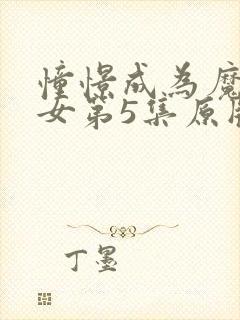 憧憬成為魔
女第5集原
丁墨